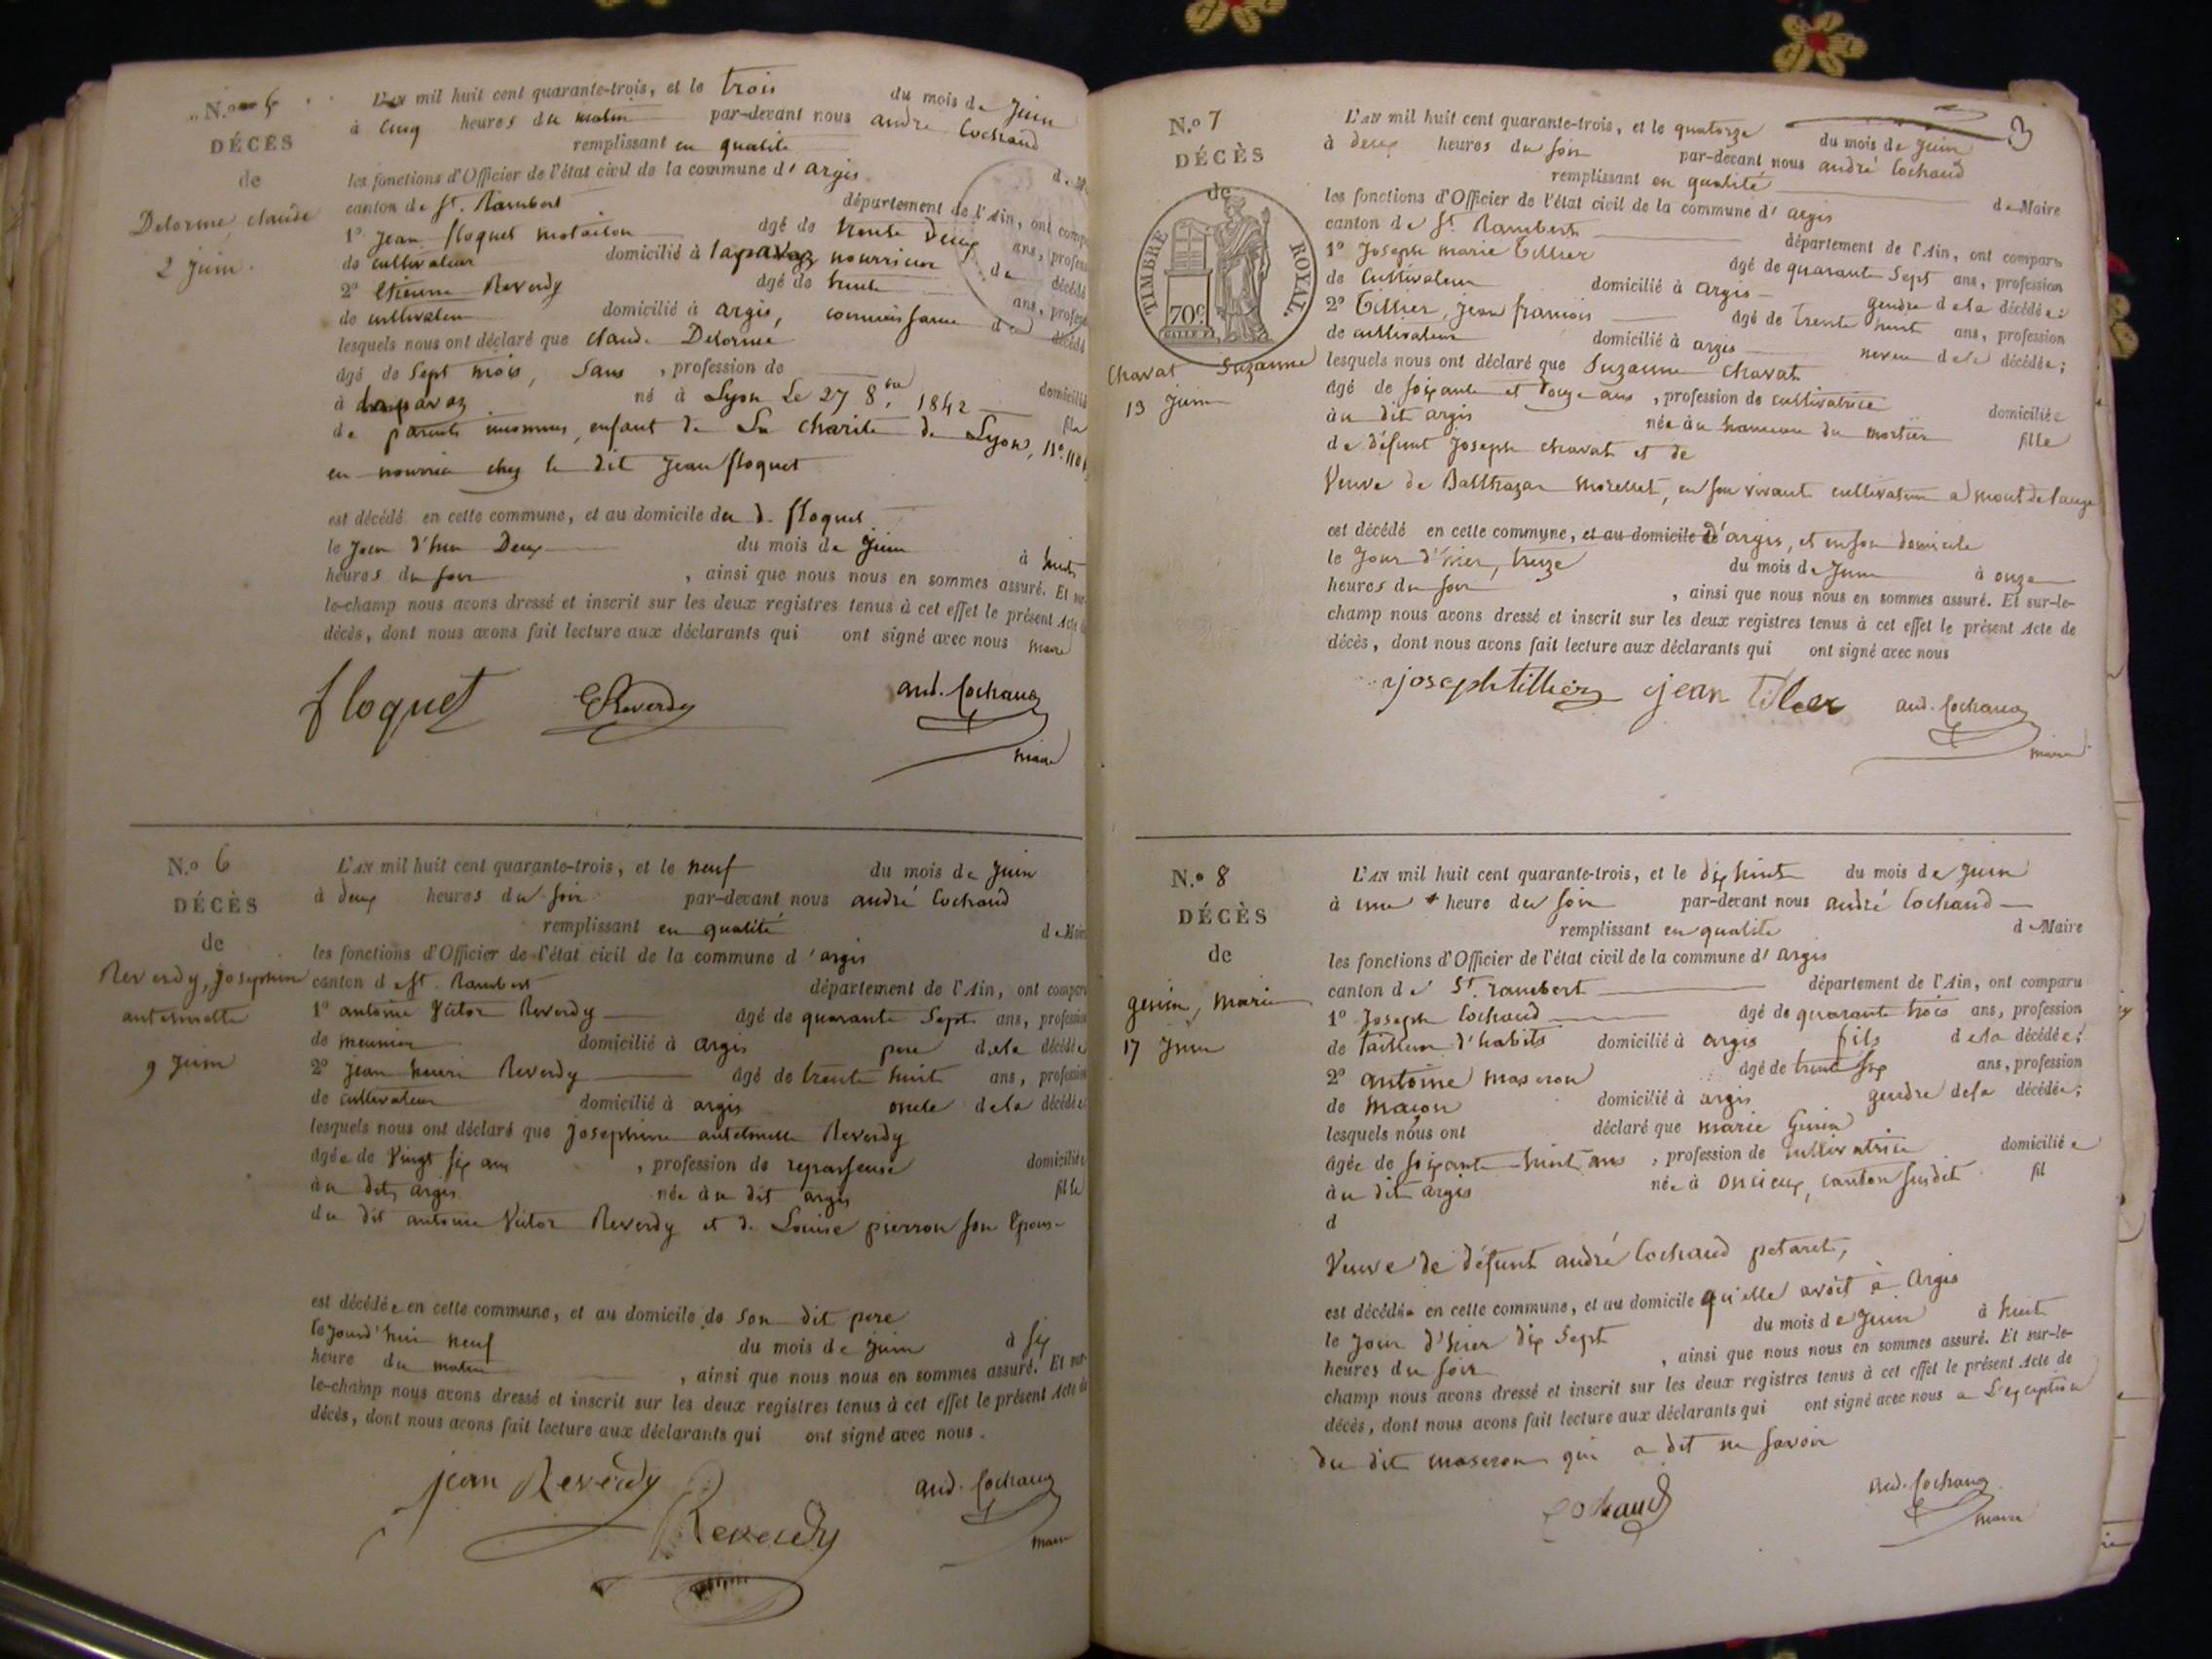 N.º 5
DÉCÈS
de
Delorme, claude
2 juin.
L'AN mil huit cent quarante-trois, et le trois du mois de Juin
à cinq heures du matin par-devant nous andré Cochaud
remplissant en qualité de M
les fonctions d'Officier de l'état civil de la commune d'argis
canton de St. Rambert département de l'Ain, ont comp
1º Jean floquet âgé de trente deux ans, profess
de cultivateur domicilié à lapavaz nourricier de décédé
2º Etienne Reverdy âgé de trente ans, profess
de cultivateur domicilié à argis, connaissance du décédé
lesquels nous ont déclaré que claude Delorme
âgé de Sept mois, Sans , profession de domicilié
à lapavaz né à Lyon Le 27 8.bre 1842 fils
de parents inconnus, enfant de La charité de Lyon, Nº.
en nourrice chez le dit Jean floquet
est décédé en cette commune, et au domicile du d. floquet
le Jour d'hier Deux du mois de Juin à huit
heures du soir , ainsi que nous nous en sommes assuré. Et sur-
le-champ nous avons dressé et inscrit sur les deux registres tenus à cet effet le présent Acte de
décès, dont nous avons fait lecture aux déclarants qui ont signé avec nous maire
floquet EReverdy and. Cochaud
maire
N.º 6
DÉCÈS
de
Reverdy, josephine
antelmette
9 Juin
L'AN mil huit cent quarante-trois, et le neuf du mois de Juin
à deux heures du soir par-devant nous andré Cochaud
remplissant en qualité de Maire
les fonctions d'Officier de l'état civil de la commune d'argis
canton de St. Rambert département de l'Ain, ont comparu
1º antoine Victor Reverdy âgé de quarante Sept ans, profession
de meunier domicilié à argis pere de la décédée
2º jean henri Reverdy âgé de trente huit ans, profession
de cultivateur domicilié à argis oncle de la décédée
lesquels nous ont déclaré que josephine antelmette Reverdy
âgée de Vingt six ans , profession de repasseuse domiciliée
au dit argis née au dit argis fille
du dit antoine Victor Reverdy et de Louise pierron son Epouse
est décédée en cette commune, et au domicile de son dit pere
le jourd'hui neuf du mois de juin à six
heure du matin , ainsi que nous nous en sommes assuré. Et sur-
le-champ nous avons dressé et inscrit sur les deux registres tenus à cet effet le présent Acte de
décès, dont nous avons fait lecture aux déclarants qui ont signé avec nous.
jean Reverdy and. Cochaud
Reverdy maire
3
N.º 7
DÉCÈS
de
TIMBRE ROYAL.
70c
Chavat Suzanne
13 Juin
L'AN mil huit cent quarante-trois, et le quatorze du mois de Juin
à deux heures du soir par-devant nous andré Cochaud
remplissant en qualité de Maire
les fonctions d'Officier de l'état civil de la commune d'argis
canton de St. Rambert département de l'Ain, ont comparu
1º Joseph marie Tillier âgé de quarante Sept ans, profession
de Cultivateur domicilié à argis gendre de la décédée;
2º Tillier, jean françois âgé de trente huit ans, profession
de cultivateur domicilié à argis neveu de la décédée;
lesquels nous ont déclaré que Suzanne chavat
âgé de soixante et douze ans , profession de cultivatrice domiciliée
au dit argis née au hameau du mortier fille
de défunt Joseph chavat et de
Veuve de Balthazar Morellet, en son vivant cultivateur a mont de lange
est décédé en cette commune, et au domicile d'argis, et en son domicile
le Jour d'hier, treize du mois de Juin à onze
heures du soir , ainsi que nous nous en sommes assuré. Et sur-le-
champ nous avons dressé et inscrit sur les deux registres tenus à cet effet le présent Acte de
décès, dont nous avons fait lecture aux déclarants qui ont signé avec nous
joseph tillier jean Tillier and. Cochaud
maire
N.º 8
DÉCÈS
de
genin, marie
17 Juin
L'AN mil huit cent quarante-trois, et le dix huit du mois de Juin
à une heure du soir par-devant nous andré Cochaud
remplissant en qualité de Maire
les fonctions d'Officier de l'état civil de la commune d'argis
canton de St. rambert département de l'Ain, ont comparu
1º Joseph Cochaud âgé de quarante trois ans, profession
de Tailleur d'habits domicilié à argis fils de la décédée;
2º antoine maseron âgé de trente six ans, profession
de maçon domicilié à argis gendre de la décédée;
lesquels nous ont déclaré que marie Genin
âgée de soixante huit ans , profession de cultivatrice domiciliée
au dit argis née à oncieux, canton susdit fil
d
Veuve de défunt andré Cochaud petaret,
est décédée en cette commune, et au domicile qu'elle avoit à Argis
le Jour d'hier dix Sept du mois de Juin à huit
heures du soir , ainsi que nous nous en sommes assuré. Et sur-le-
champ nous avons dressé et inscrit sur les deux registres tenus à cet effet le présent Acte de
décès, dont nous avons fait lecture aux déclarants qui ont signé avec nous a L'exception
du dit maseron qui a dit ne savoir
Cochaud and. Cochaud
maire